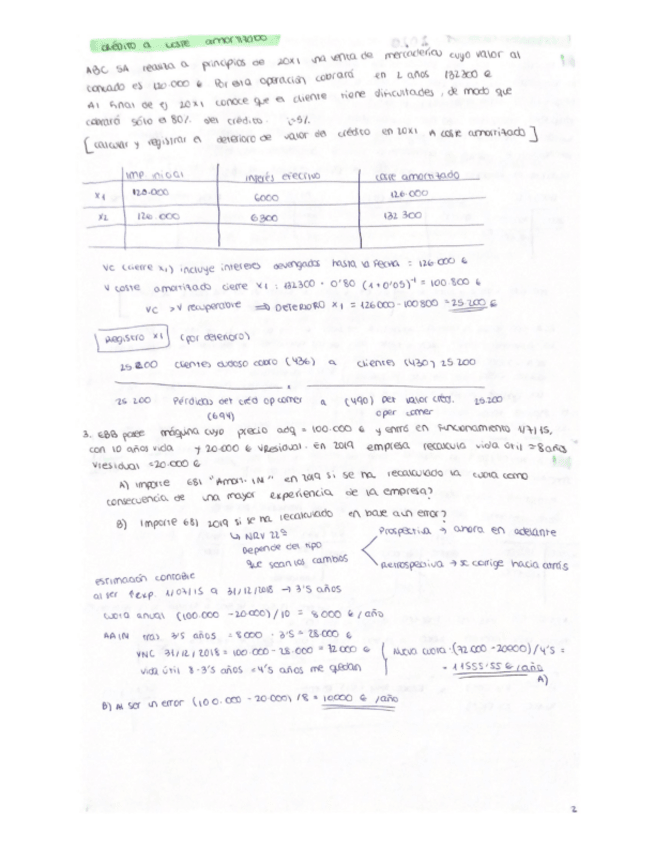 CRÉDITO A COSTE AMORTIZADO
ABC SA realiza a principios de 20X1 una venta de mercaderías cuyo valor al
contado es 120.000 € Por esta operación cobrará en 2 años 132300 €
Al final de ej 20X1 conoce que el cliente tiene dificultades, de modo que
cobrará sólo el 80% del crédito. i=5%
[calcular y registrar el deterioro de valor del crédito en 20X1. A coste amortizado]
Imp. inicial interés efectivo coste amortizado
X1 120.000 6000 126.000
X2 126.000 6300 132 300
VC (cierre X1) incluye intereses devengados hasta la fecha = 126 000 €
V coste amortizado cierre X1 : 132300 · 0'80 (1+0'05)⁻¹ = 100 800 €
VC > V recuperable ⇒ DETERIORO X1 = 126000 - 100800 = 25 200 €
Registro X1 (por deterioro)
25 200 clientes dudoso cobro (436) a clientes (430) 25 200
25 200 Pérdidas det créd op comer a (490) Det valor créd. 25.200
(694) oper comer
3. EBB posee máquina cuyo precio adq = 100.000 € y entró en funcionamiento 1/7/15,
con 10 años vida y 20.000 € VResidual. En 2019 empresa recalcula vida útil = 8 años
VResidual = 20.000 €
A) importe 681 "Amort. IN" en 2019 si se ha recalculado la cuota como
consecuencia de una mayor experiencia de la empresa?
B) Importe 681 2019 si se ha recalculado en base a un error?
↳ NRV 22ª
Depende del tipo
que sean los cambios
Prospectiva → ahora en adelante
Retrospectiva → se corrige hacia atrás
estimación contable
al ser + exp. 1/07/15 a 31/12/2018 → 3'5 años
cuota anual (100.000 - 20000)/10 = 8000 € / año
AAIN tras 3'5 años = 8000 · 3'5 = 28.000 €
VNC 31/12/2018 = 100.000 - 28.000 = 72.000 €
vida útil 8 - 3'5 años = 4'5 años me quedan
Nueva cuota · (72.000 - 20000) / 4'5 =
= 11555'55 € / año
A)
B) Al ser un error (100.000 - 20.000) / 8 = 10000 € / año
2